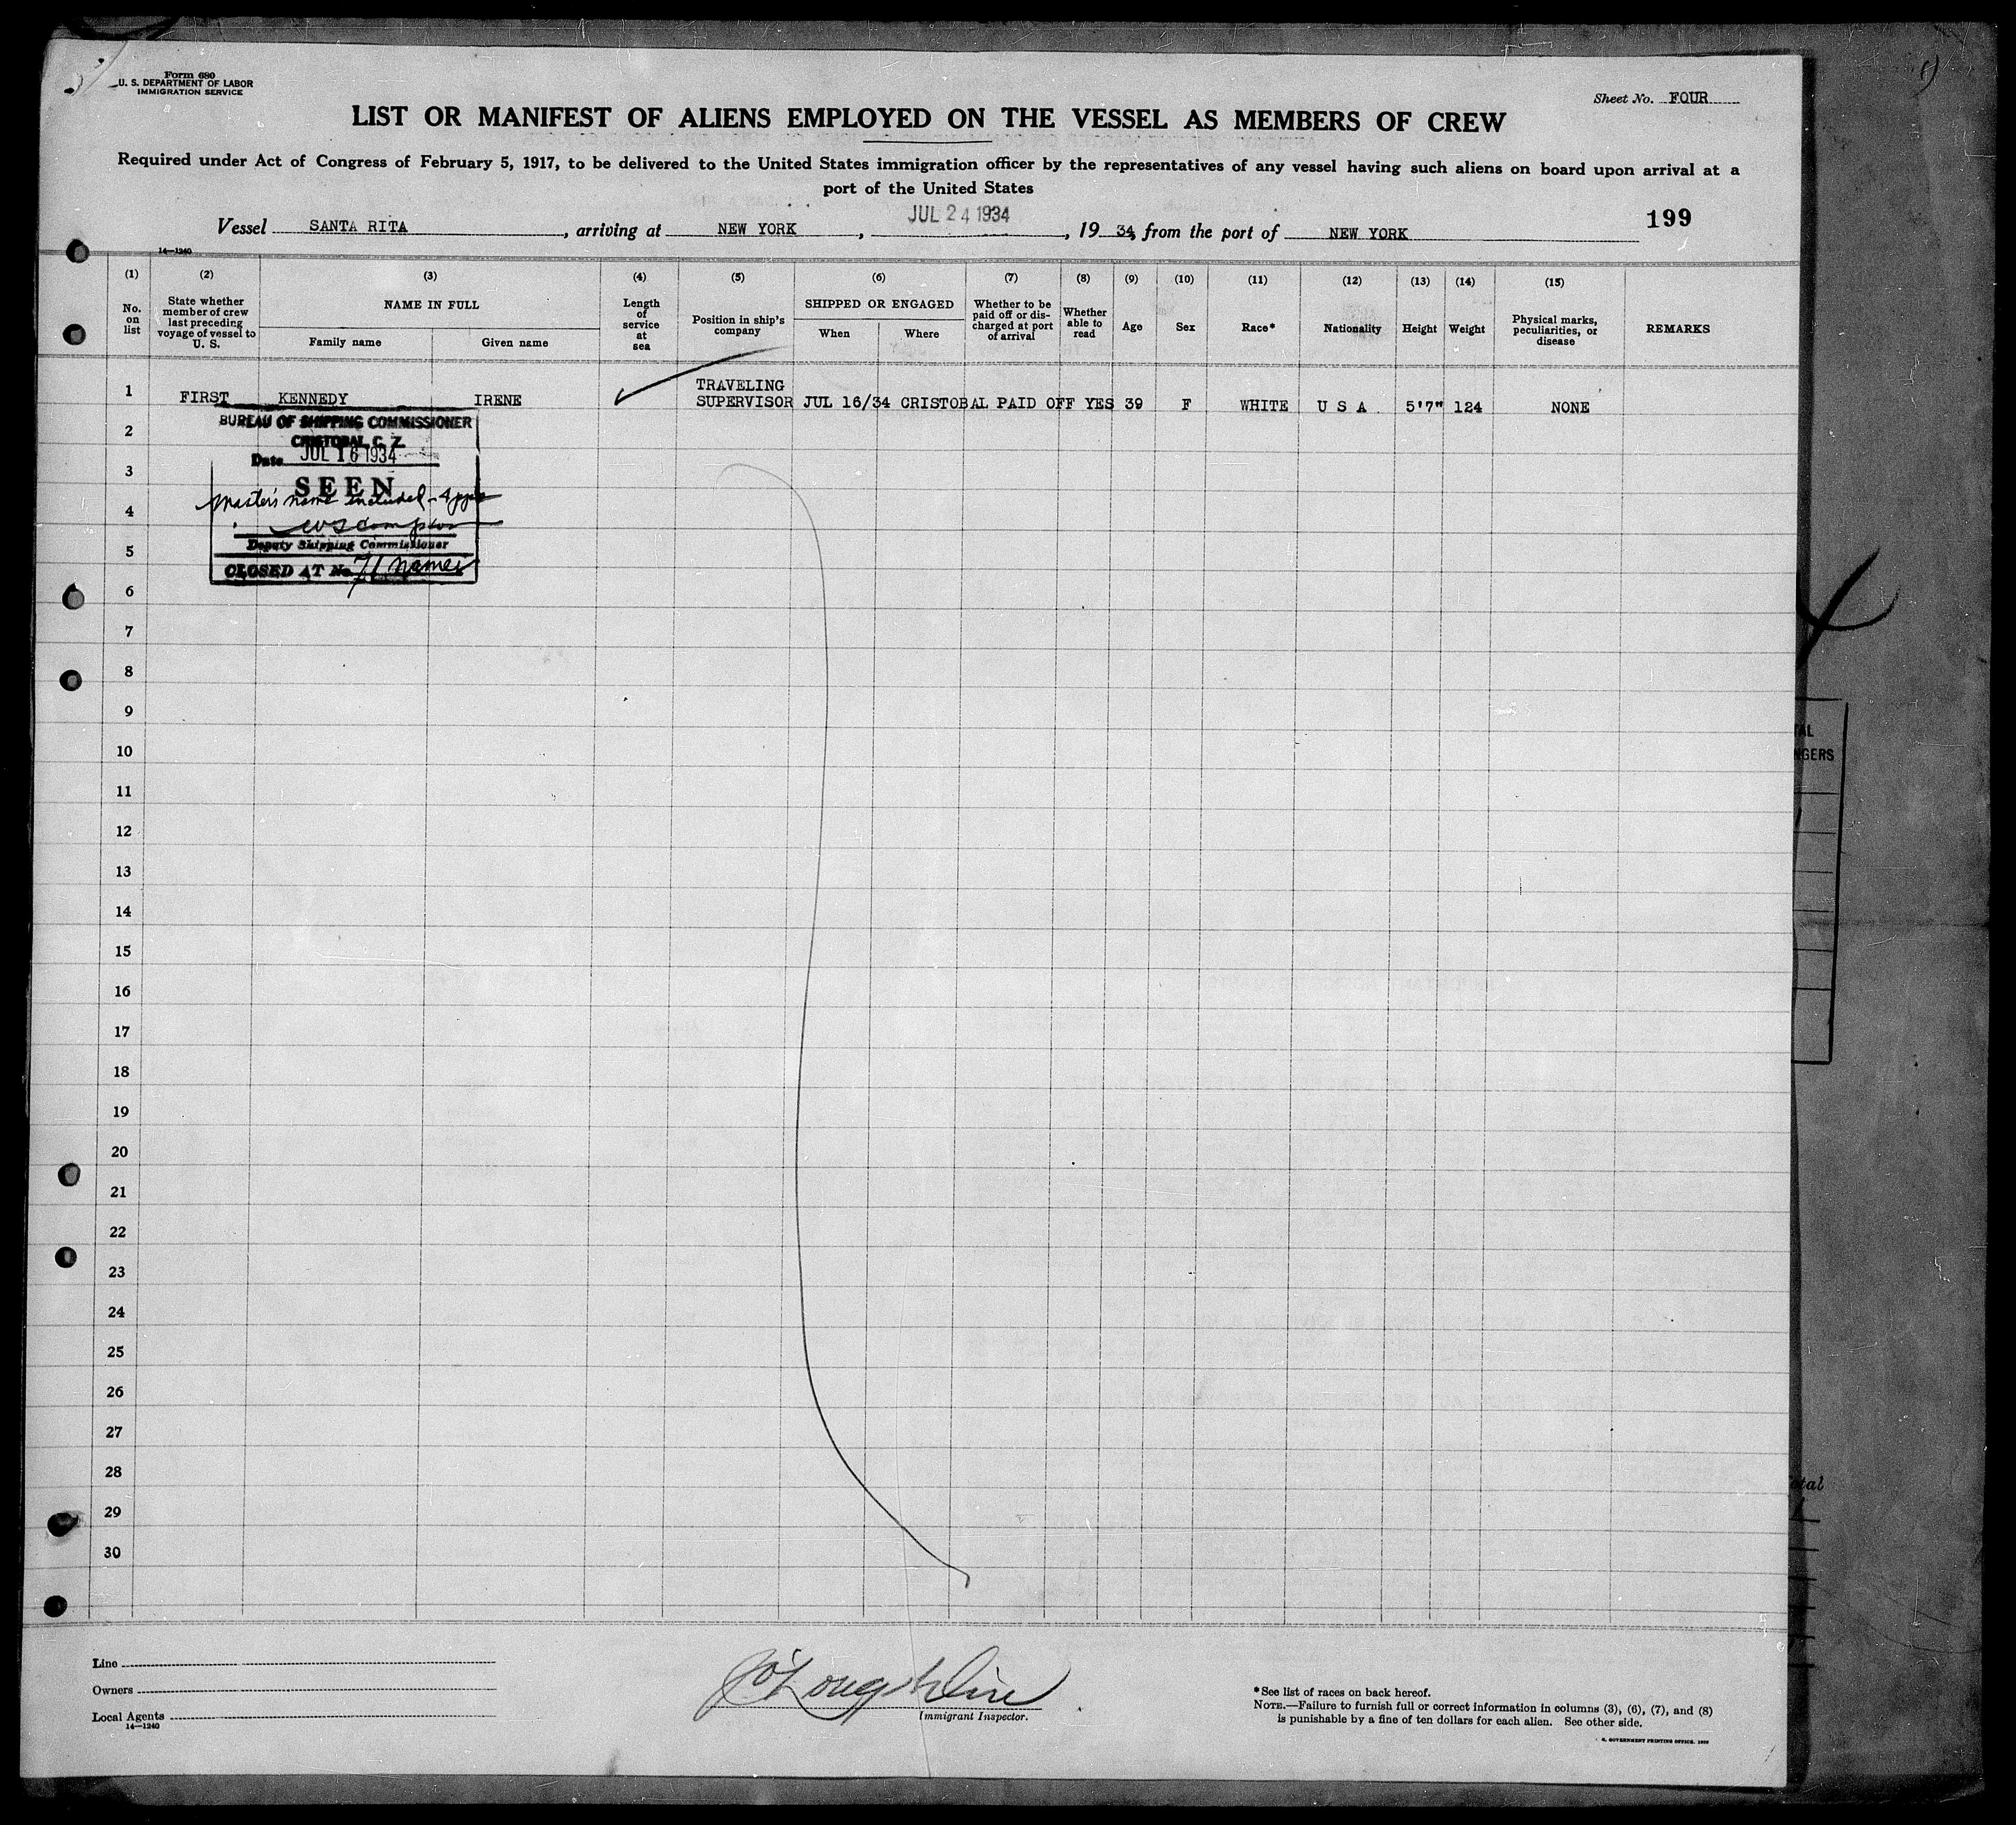 Form 680
U. S. DEPARTMENT OF LABOR
IMMIGRATION SERVICE
Sheet No. FOUR
LIST OR MANIFEST OF ALIENS EMPLOYED ON THE VESSEL AS MEMBERS OF CREW
Required under Act of Congress of February 5, 1917, to be delivered to the United States immigration officer by the representatives of any vessel having such aliens on board upon arrival at a
port of the United States
JUL 24 1934
199
Vessel SANTA RITA, arriving at NEW YORK, , 1934, from the port of NEW YORK
14—1240
(1) (2) (3) (4) (5) (6) (7) (8) (9) (10) (11) (12) (13) (14) (15)
No. on list
State whether member of crew last preceding voyage of vessel to U. S.
NAME IN FULL
Family name
Given name
Length of service at sea
Position in ship's company
SHIPPED OR ENGAGED
When
Where
Whether to be paid off or discharged at port of arrival
Whether able to read
Age
Sex
Race*
Nationality
Height
Weight
Physical marks, peculiarities, or disease
REMARKS
1 FIRST KENNEDY IRENE TRAVELING SUPERVISOR JUL 16/34 CRISTOBAL PAID OFF YES 39 F WHITE U S A 5'7" 124 NONE
BUREAU OF SHIPPING COMMISSIONER
CRISTOBAL C. Z.
Date JUL 16 1934
SEEN
Master's name included - 4
Deputy Shipping Commissioner
CLOSED AT No. 71 names
2
3
4
5
6
7
8
9
10
11
12
13
14
15
16
17
18
19
20
21
22
23
24
25
26
27
28
29
30
TAL
NGERS
otal
Line
Owners
Local Agents
14—1240
Immigrant Inspector.
*See list of races on back hereof.
NOTE.—Failure to furnish full or correct information in columns (3), (6), (7), and (8)
is punishable by a fine of ten dollars for each alien. See other side.
GOVERNMENT PRINTING OFFICE